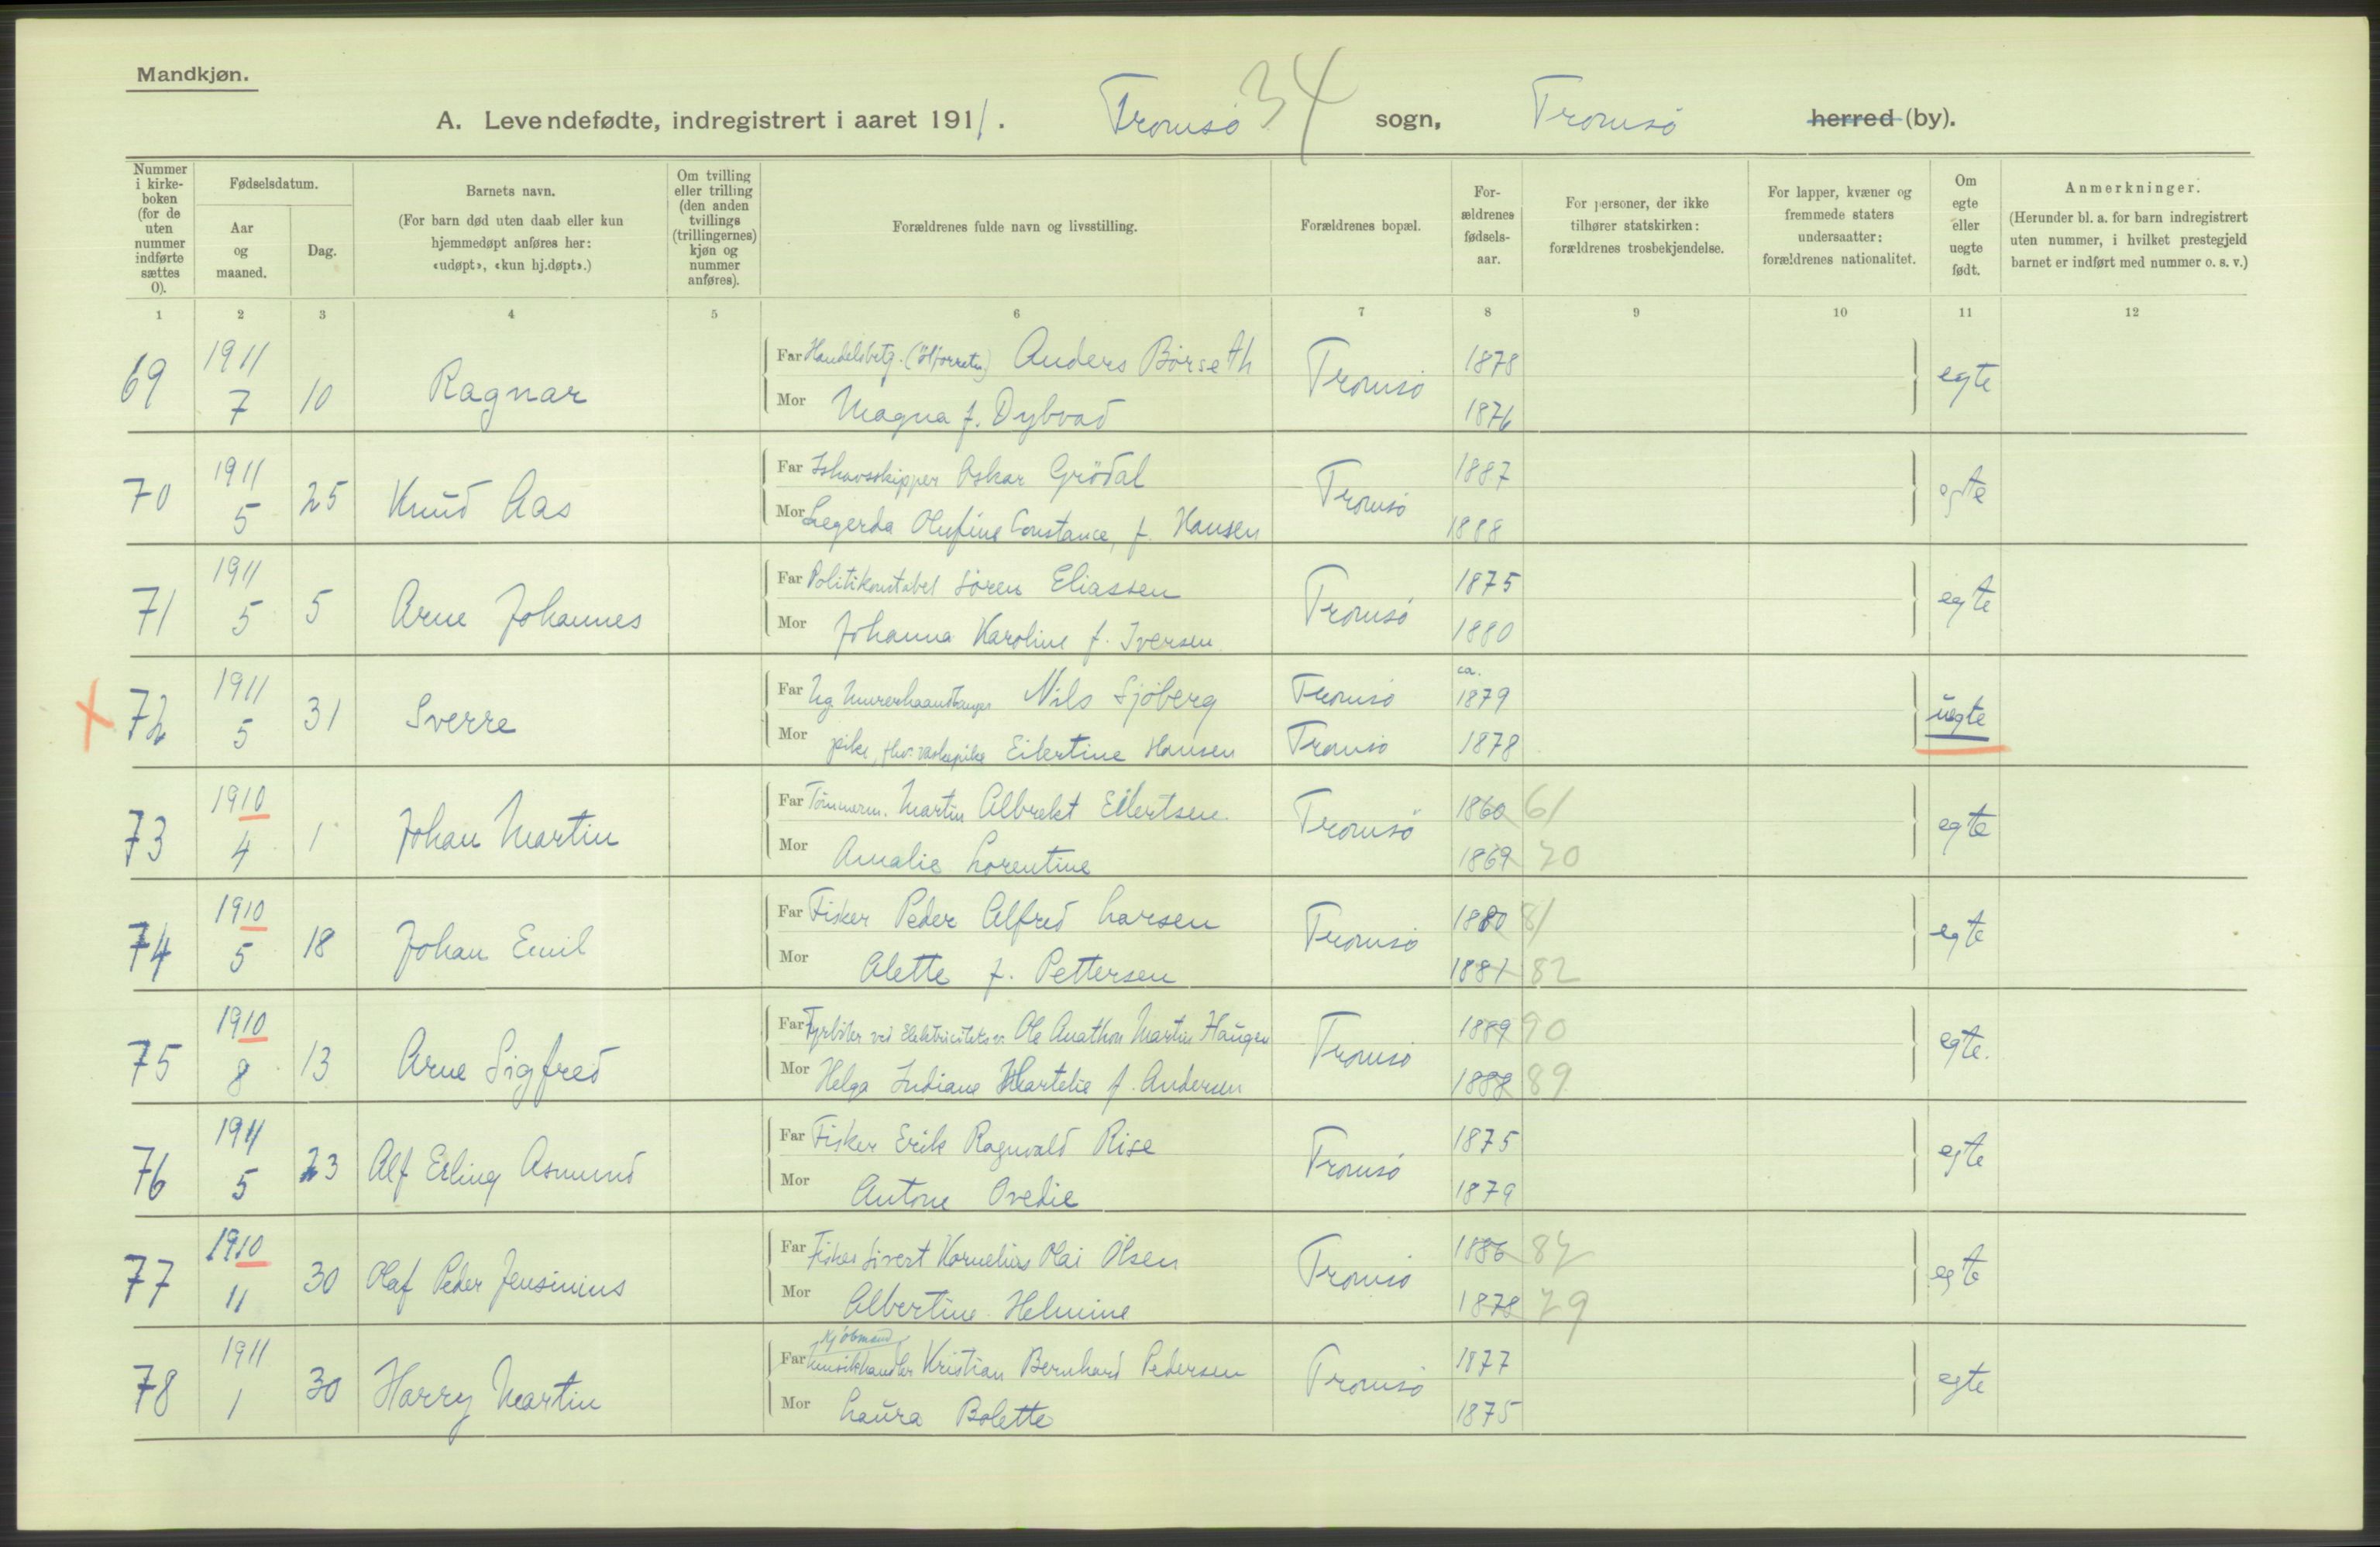 Mandkjøn.
A. Levendefødte, indregistrert i aaret 1911. Tromsö 34 sogn, Tromsö herred (by).
Nummer i kirke-boken (for de uten nummer indførte sættes 0).
Fødselsdatum.
Aar og maaned.
Dag.
Barnets navn.
(For barn død uten daab eller kun hjemmedøpt anføres her: «udøpt», «kun hj.døpt».)
Om tvilling eller trilling (den anden tvillings (trillingernes) kjøn og nummer anføres).
Forældrenes fulde navn og livsstilling.
Forældrenes bopæl.
For-ældrenes fødsels-aar.
For personer, der ikke tilhører statskirken: forældrenes trosbekjendelse.
For lapper, kvæner og fremmede staters undersaatter: forældrenes nationalitet.
Om egte eller uegte født.
Anmerkninger.
(Herunder bl. a. for barn indregistrert uten nummer, i hvilket prestegjeld barnet er indført med nummer o. s. v.)
1 2 3 4 5 6 7 8 9 10 11 12
69 1911 7 10 Ragnar
Far Handelsbetj. Anders Börseth Tromsö 1878 egte
Mor Magna f. Dybvad 1876
70 1911 5 25 Knud Aas
Far Ishavsskipper Oskar Grödal Tromsö 1887 egte
Mor Olufine Constance, f. Hansen 1888
71 1911 5 5 Arne Johannes
Far Politikonstabel Sören Eliassen Tromsö 1875 egte
Mor Johanna Karoline f. Iversen 1880
X 72 1911 5 31 Sverre
Far Ug. Murerhaandlanger Nils Sjöberg Tromsö ca. 1879 uegte
Mor pike, fhv. vaskepike Eilertine Hansen Tromsö 1878
73 1910 4 1 Johan Martin
Far Tömmerm. Martin Albrekt Eilertsen Tromsö 1860 61 egte
Mor Amalie Lorentine 1869 70
74 1910 5 18 Johan Emil
Far Fisker Peder Alfred Larsen Tromsö 1880 81 egte
Mor Alette f. Pettersen 1881 82
75 1910 8 13 Arne Sigfred
Far Fyrböter ved Elektricitetsv. Ole Anathon Martin Haugen Tromsö 1889 90 egte.
Mor Helga Indiane f. Andersen 1888 89
76 1911 5 23 Alf Erling Asmund
Far Fisker Erik Ragnvald Rise Tromsö 1875 egte
Mor Antone Ovedie 1879
77 1910 11 30 Olaf Peder Jensinius
Far Fisker Sivert Kornelius Olai Olsen Tromsö 1886 87 egte
Mor Albertine Helmine 1878 79
78 1911 1 30 Harry Martin
Kjöbmand
Far Musikhandler Kristian Bernhard Pedersen Tromsö 1877 egte
Mor Laura Bolette 1875